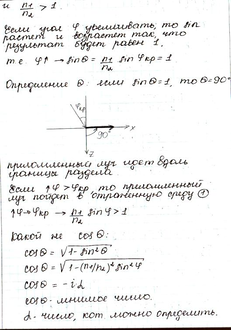 и n1/n2 > 1.
Если угол φ увеличивать, то sin
растет и возрастет так, что
результат будет равен 1.
т.е. φ↑ → sinθ = n1/n2 sinφкр = 1.
Определение θ если sinθ=1, то θ=90°
φкр
90°
x
z
преломленный луч идет вдоль
границы раздела.
Если ↑φ > φкр то преломленный
луч пойдет в отраженную среду ①
↑φ→φкр → n1/n2 sinφ > 1
Какой же cosθ:
cosθ = √(1-sin²θ)
cosθ = √(1-(n1/n2)² sin²φ)
cosθ = -iα
cosθ - мнимое число.
α - число, кот. можно определить.